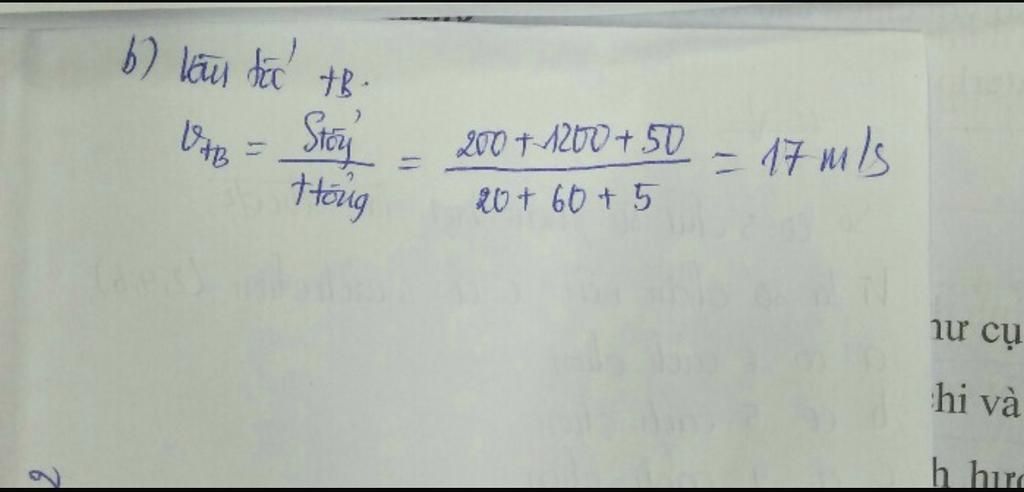 b) Vận tốc TB.
v_TB = S tổng / t tổng = (200 + 1200 + 50) / (20 + 60 + 5) = 17 m/s
hư cụ
chi và
h hươ
2